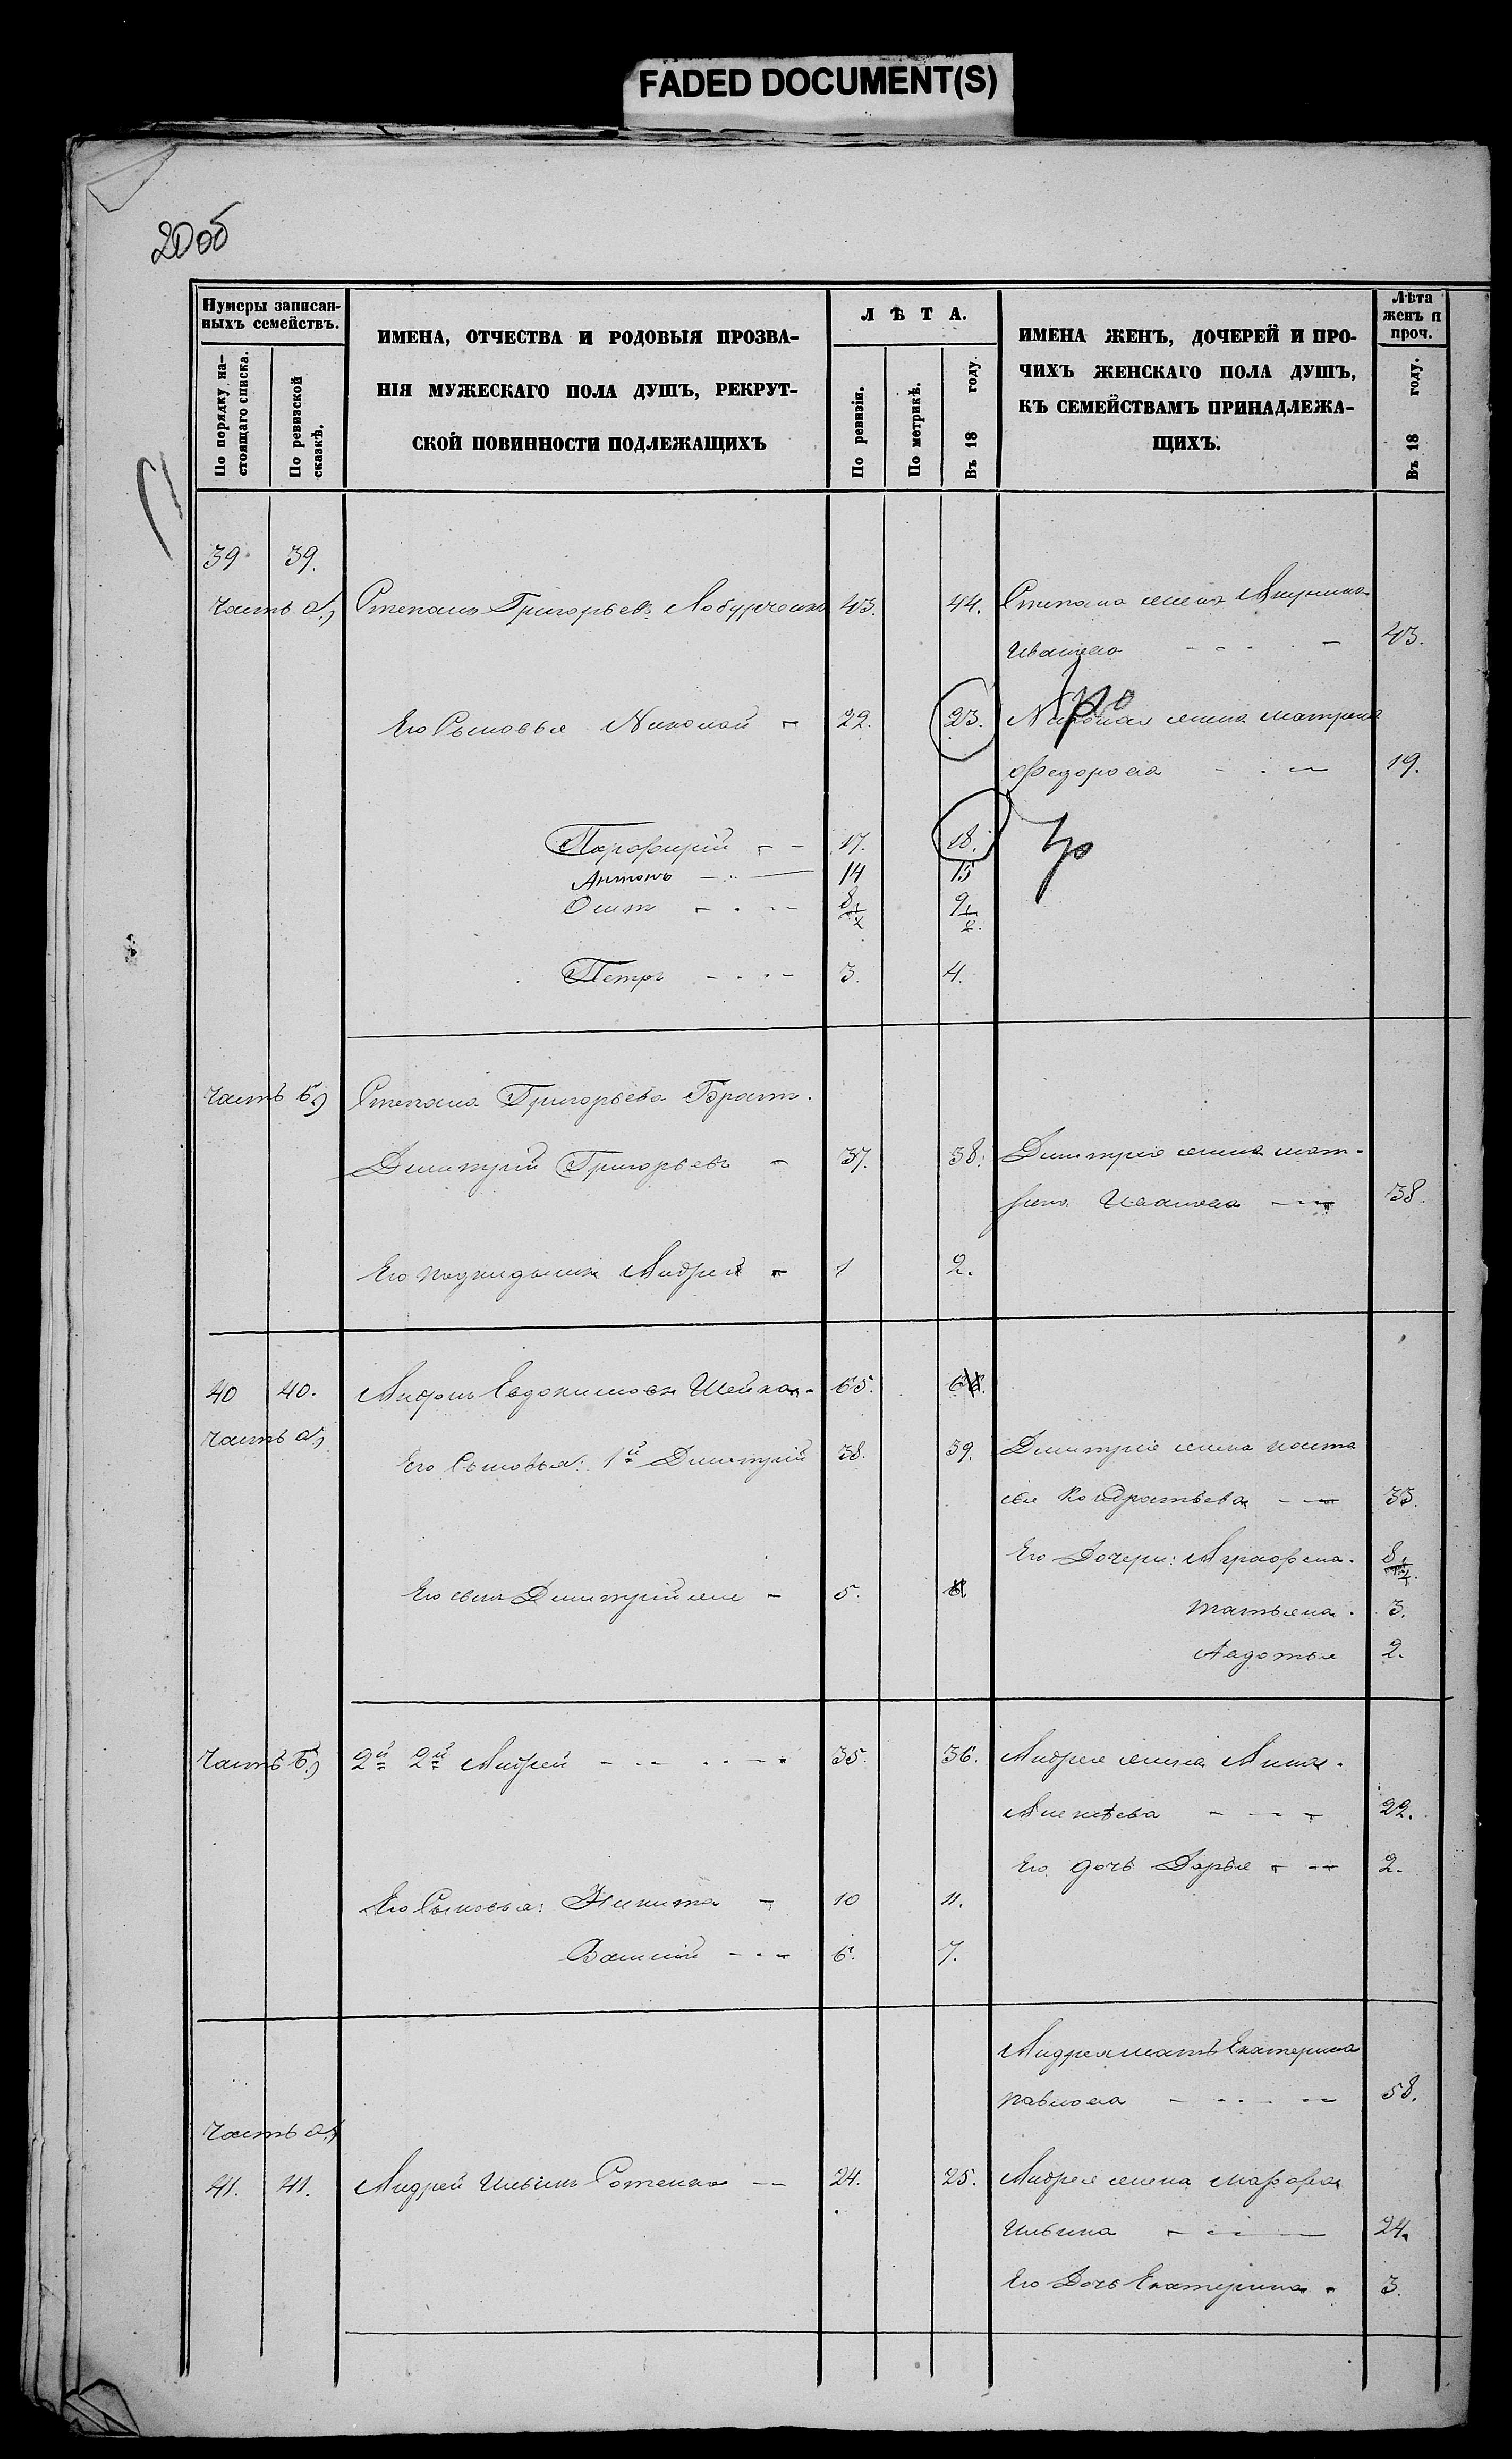 FADED DOCUMENT(S)
20об
Нумеры записан-
ныхъ семействъ.
По порядку на-
стоящаго списка.
По ревизской
сказкѣ.
ИМЕНА, ОТЧЕСТВА И РОДОВЫЯ ПРОЗВА-
НІЯ МУЖЕСКАГО ПОЛА ДУШЪ, РЕКРУТ-
СКОЙ ПОВИННОСТИ ПОДЛЕЖАЩИХЪ
ЛѢТА.
По ревизіи.
По метрикѣ.
Въ 18 году.
ИМЕНА ЖЕНЪ, ДОЧЕРЕЙ И ПРО-
ЧИХЪ ЖЕНСКАГО ПОЛА ДУШЪ,
КЪ СЕМЕЙСТВАМЪ ПРИНАДЛЕЖА-
ЩИХЪ.
Лѣта
женъ и
проч.
Въ 18 году.
39 39.
Часть а) Степанъ Григорьевъ 43. 44. Степана жена
Иванова - - - - 43.
Его Сыновья Николай - 22. 23. Николая жена Матрена
Федорова - - - 19.
Порфирій - - 17. 18.
Антонъ - - 14 15
Осипъ - - - 8 9
Петръ - - - - 3. 4.
Часть б) Степана Григорьева Братъ.
Димитрій Григорьевъ - 37. 38. Димитрія жена Мат-
рена Иванова - - 38.
Его подкидышъ Андрей - 1 2.
40 40. Евдокимовъ Шейка 65.
Часть а)
Его Сыновья: 1й Димитрій 38. 39. Димитрія жена Наста
сья Кондратьева - - 33.
Его Дочери: Аграфена. 8
Его сынъ Димитрій же - 5. Татьяна. 3.
Авдотья 2.
Часть б) 2й 2й Андрей - - - - - 35. 36. Андрея жена Анна.
Алексѣева - - - - 22.
Его дочь Дарья - - 2.
Его Сыновья: Никита - 10 11.
Василій - - - 6. 7.
Андрея мать Екатерина
Павлова - - - - 58.
Часть а)
41. 41. Андрей Ильинъ - 24. 25. Андрея жена Марфа
Ильина - - - 24.
Его Дочь Екатерина - 3.